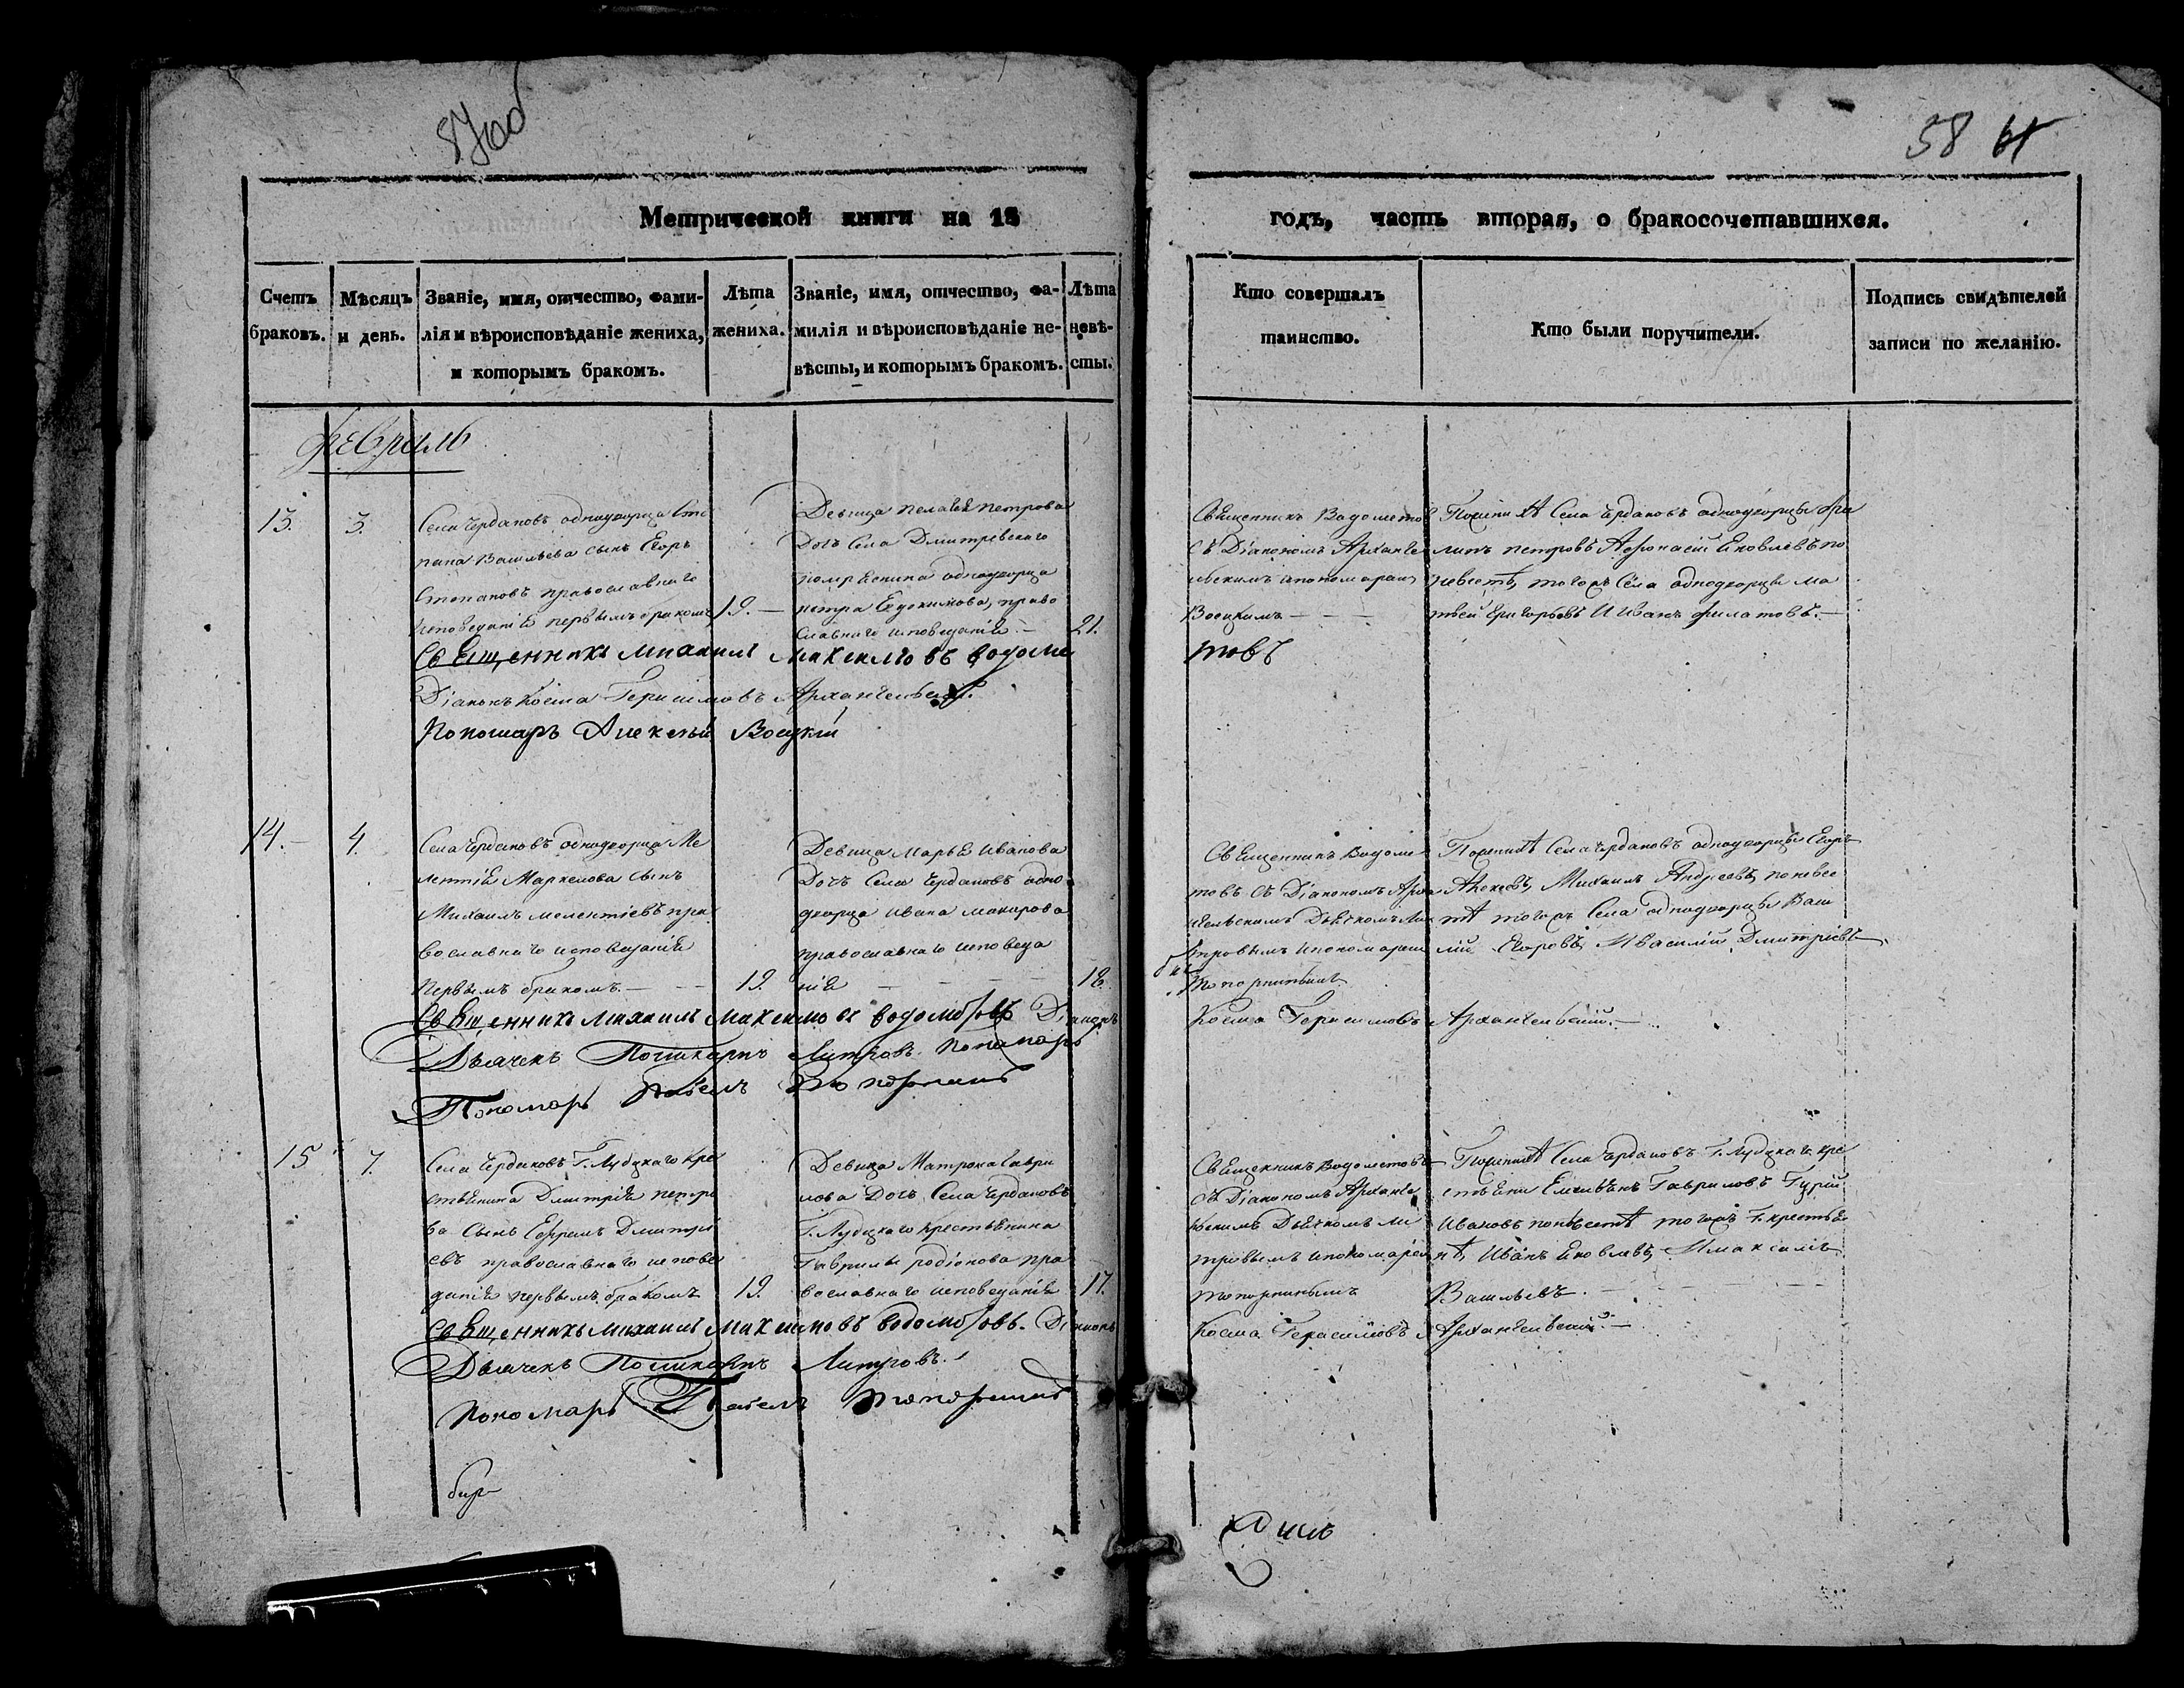 58
Метрической книги на 18
годъ, часть вторая, о бракосочетавшихся.
Счетъ браковъ.
Мѣсяцъ и день.
Званіе, имя, отчество, фами-
лія и вѣроисповѣданіе жениха,
и которымъ бракомъ.
Лѣта
жениха.
Званіе, имя, отчество, фа-
милія и вѣроисповѣданіе не-
вѣсты, и которымъ бракомъ.
Лѣта
невѣ-
сты.
Кто совершалъ
таинство.
Кто были поручители.
Подпись свидѣтелей
записи по желанію.
Февраль
13.
3.
Села Чердаковъ однодворца Сте
пана Васильева сынъ Егоръ
Степановъ православнаго
исповеданія первымъ бракомъ
19.
Девица Пелагея Петрова
Дочь Села Дмитріевскаго
однодворца
Петра Евдокимова, право
славнаго исповеданія.
21.
Священникъ Водометов
съ Діакономъ Арханге
льскимъ и пономарем
Воецкимъ
По женихѣ Села Чердаковъ однодворцы
Петровъ Афонасій Яковлевъ по
невестѣ, тогожъ Села однодворцы Ма
твей Григорьевъ И Иванъ Филатовъ.
Священникъ Михаилъ Максимовъ Водоме
товъ
Діаконъ Косма Герасимовъ Архангельскій.
Пономаръ Алексѣй Воецкій
14.
4.
Села Чердаковъ однодворца Ме
лентія Маркелова сынъ
Михаилъ Мелентіевъ пра
вославнаго исповеданія
первымъ бракомъ.
19.
Девица Марья Иванова
Дочь Села Чердаковъ одно
дворца Ивана Макарова
православнаго исповеда
нія
18.
Священникъ Водоме
товъ съ Діакономъ Арха
нгельскимъ Дьячкомъ Ли
тровымъ и пономарем
По женихѣ Села Чердаковъ однодворцы Егоръ
Михаилъ Андреевъ, по невес
тѣ тогожъ Села однодворцы Васи
лій Егоровъ И Василій Дмитріевъ
Священникъ Михаилъ Максимовъ Водометовъ Діаконъ
Косма Герасимовъ Архангельскій.
Дьячекъ Поликарпъ Литровъ. Пономарь
Пономарь Павелъ Топорнинъ
15
7.
Села Чердаковъ Г. Лубяцкаго кре
стьянина Дмитрія Петро
ва Сынъ Ефремъ Дмитрі
евъ православнаго испове
данія первымъ бракомъ
19.
Девица Матрона Гаври
лова Дочь Села Чердаковъ
Г. Лубяцкаго крестьянина
Гаврилы Родіонова пра
вославнаго исповеданія
17.
Священникъ Водометовъ
съ Діакономъ Арханге
льскимъ Дьячкомъ Ли
тровымъ и пономарем
Топорнинымъ
По женихѣ Села Чердаковъ Г. Лубяцкаго кре
стьяни Гавриловъ Гурій
Ивановъ по невестѣ тогожъ Г. крестья
нѣ, Иванъ Яковлевъ, И Максимъ
Васильевъ.
Священникъ Михаилъ Максимовъ Водометовъ. Діаконъ
Косма Герасимовъ Архангельскій.
Дьячекъ Поликарпъ Литровъ.
Пономарь Павелъ Топорнинъ